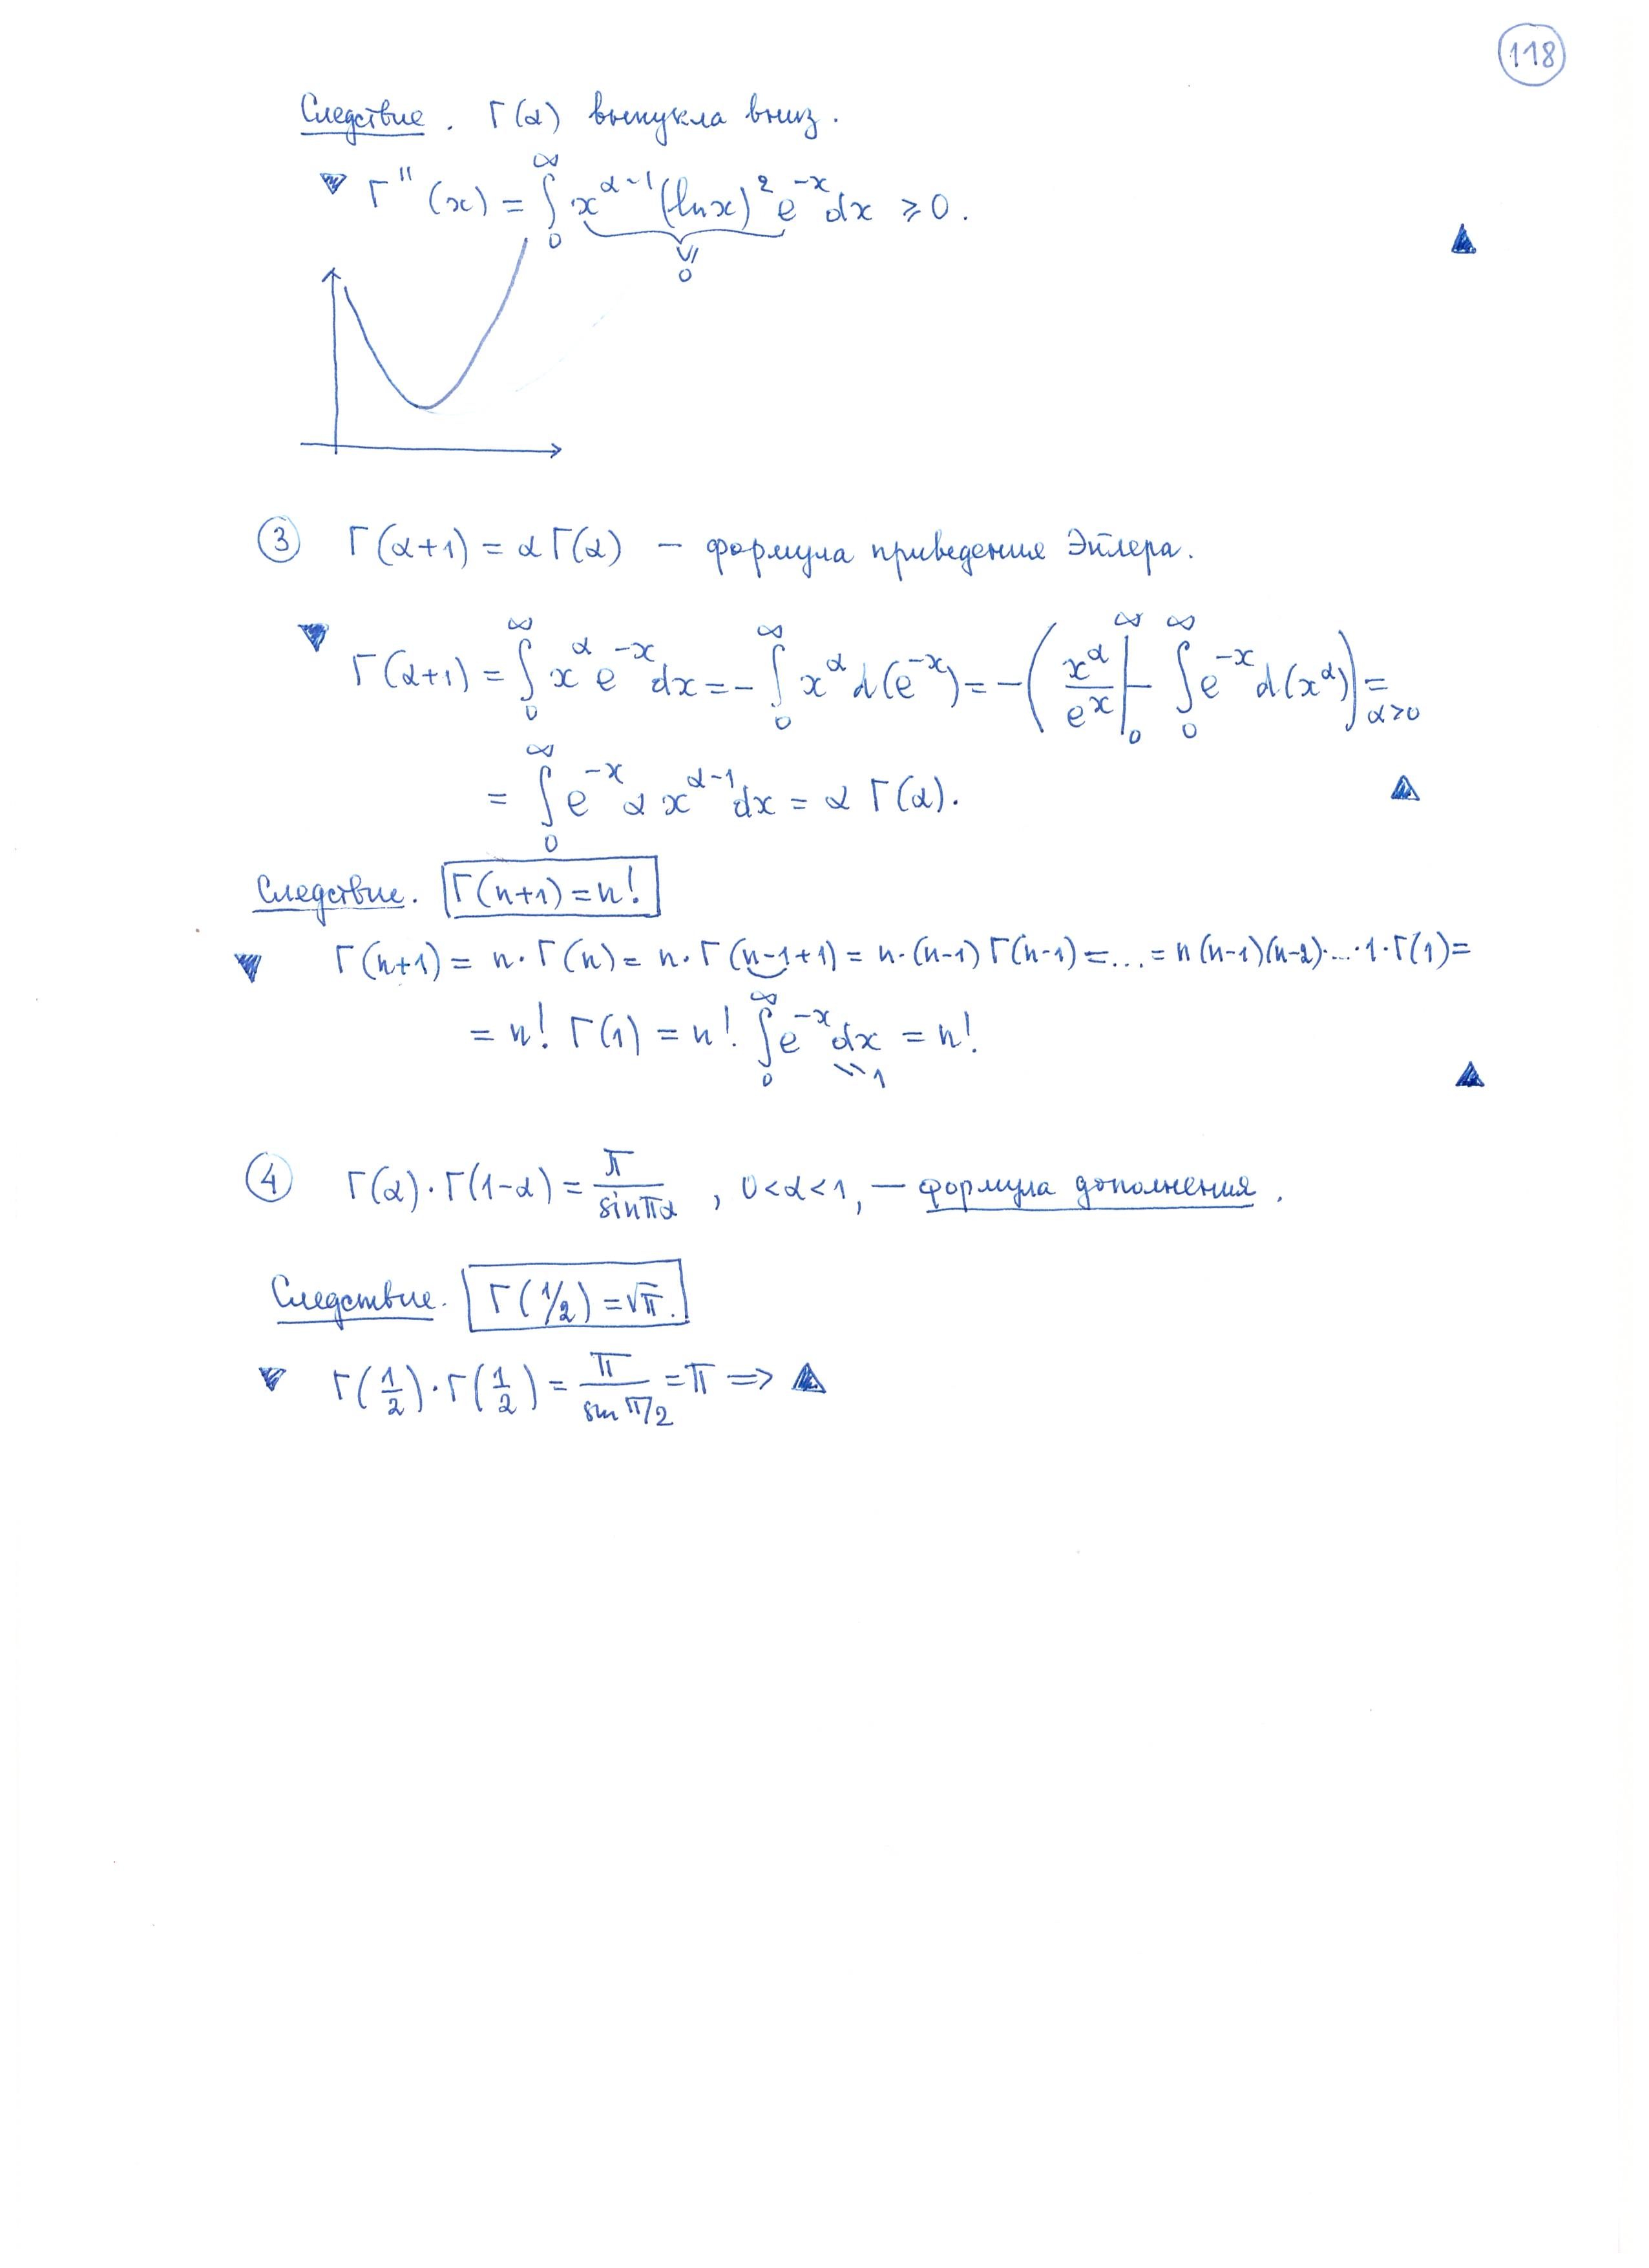 118
Следствие. Γ(α) выпукла вниз.
▼ Γ''(x) = ∫₀^∞ x^{α-1} (ln x)² e^{-x} dx ⩾ 0. ▲
⩾ 0
③ Γ(α+1) = αΓ(α) — формула приведения Эйлера.
▼ Γ(α+1) = ∫₀^∞ x^α e^{-x} dx = - ∫₀^∞ x^α d(e^{-x}) = -( x^α/e^x |₀^∞ - ∫₀^∞ e^{-x} d(x^α) ) =_{α>0}
= ∫₀^∞ e^{-x} α x^{α-1} dx = α Γ(α). ▲
Следствие. Γ(n+1) = n!
▼ Γ(n+1) = n·Γ(n) = n·Γ(n-1+1) = n·(n-1)Γ(n-1) = ... = n(n-1)(n-2)·...·1·Γ(1) =
= n! Γ(1) = n! ∫₀^∞ e^{-x} dx = n!
= 1 ▲
④ Γ(α)·Γ(1-α) = π/sin πα , 0<α<1, — формула дополнения.
Следствие. Γ(1/2) = √π.
▼ Γ(1/2)·Γ(1/2) = π/sin π/2 = π ⇒ ▲